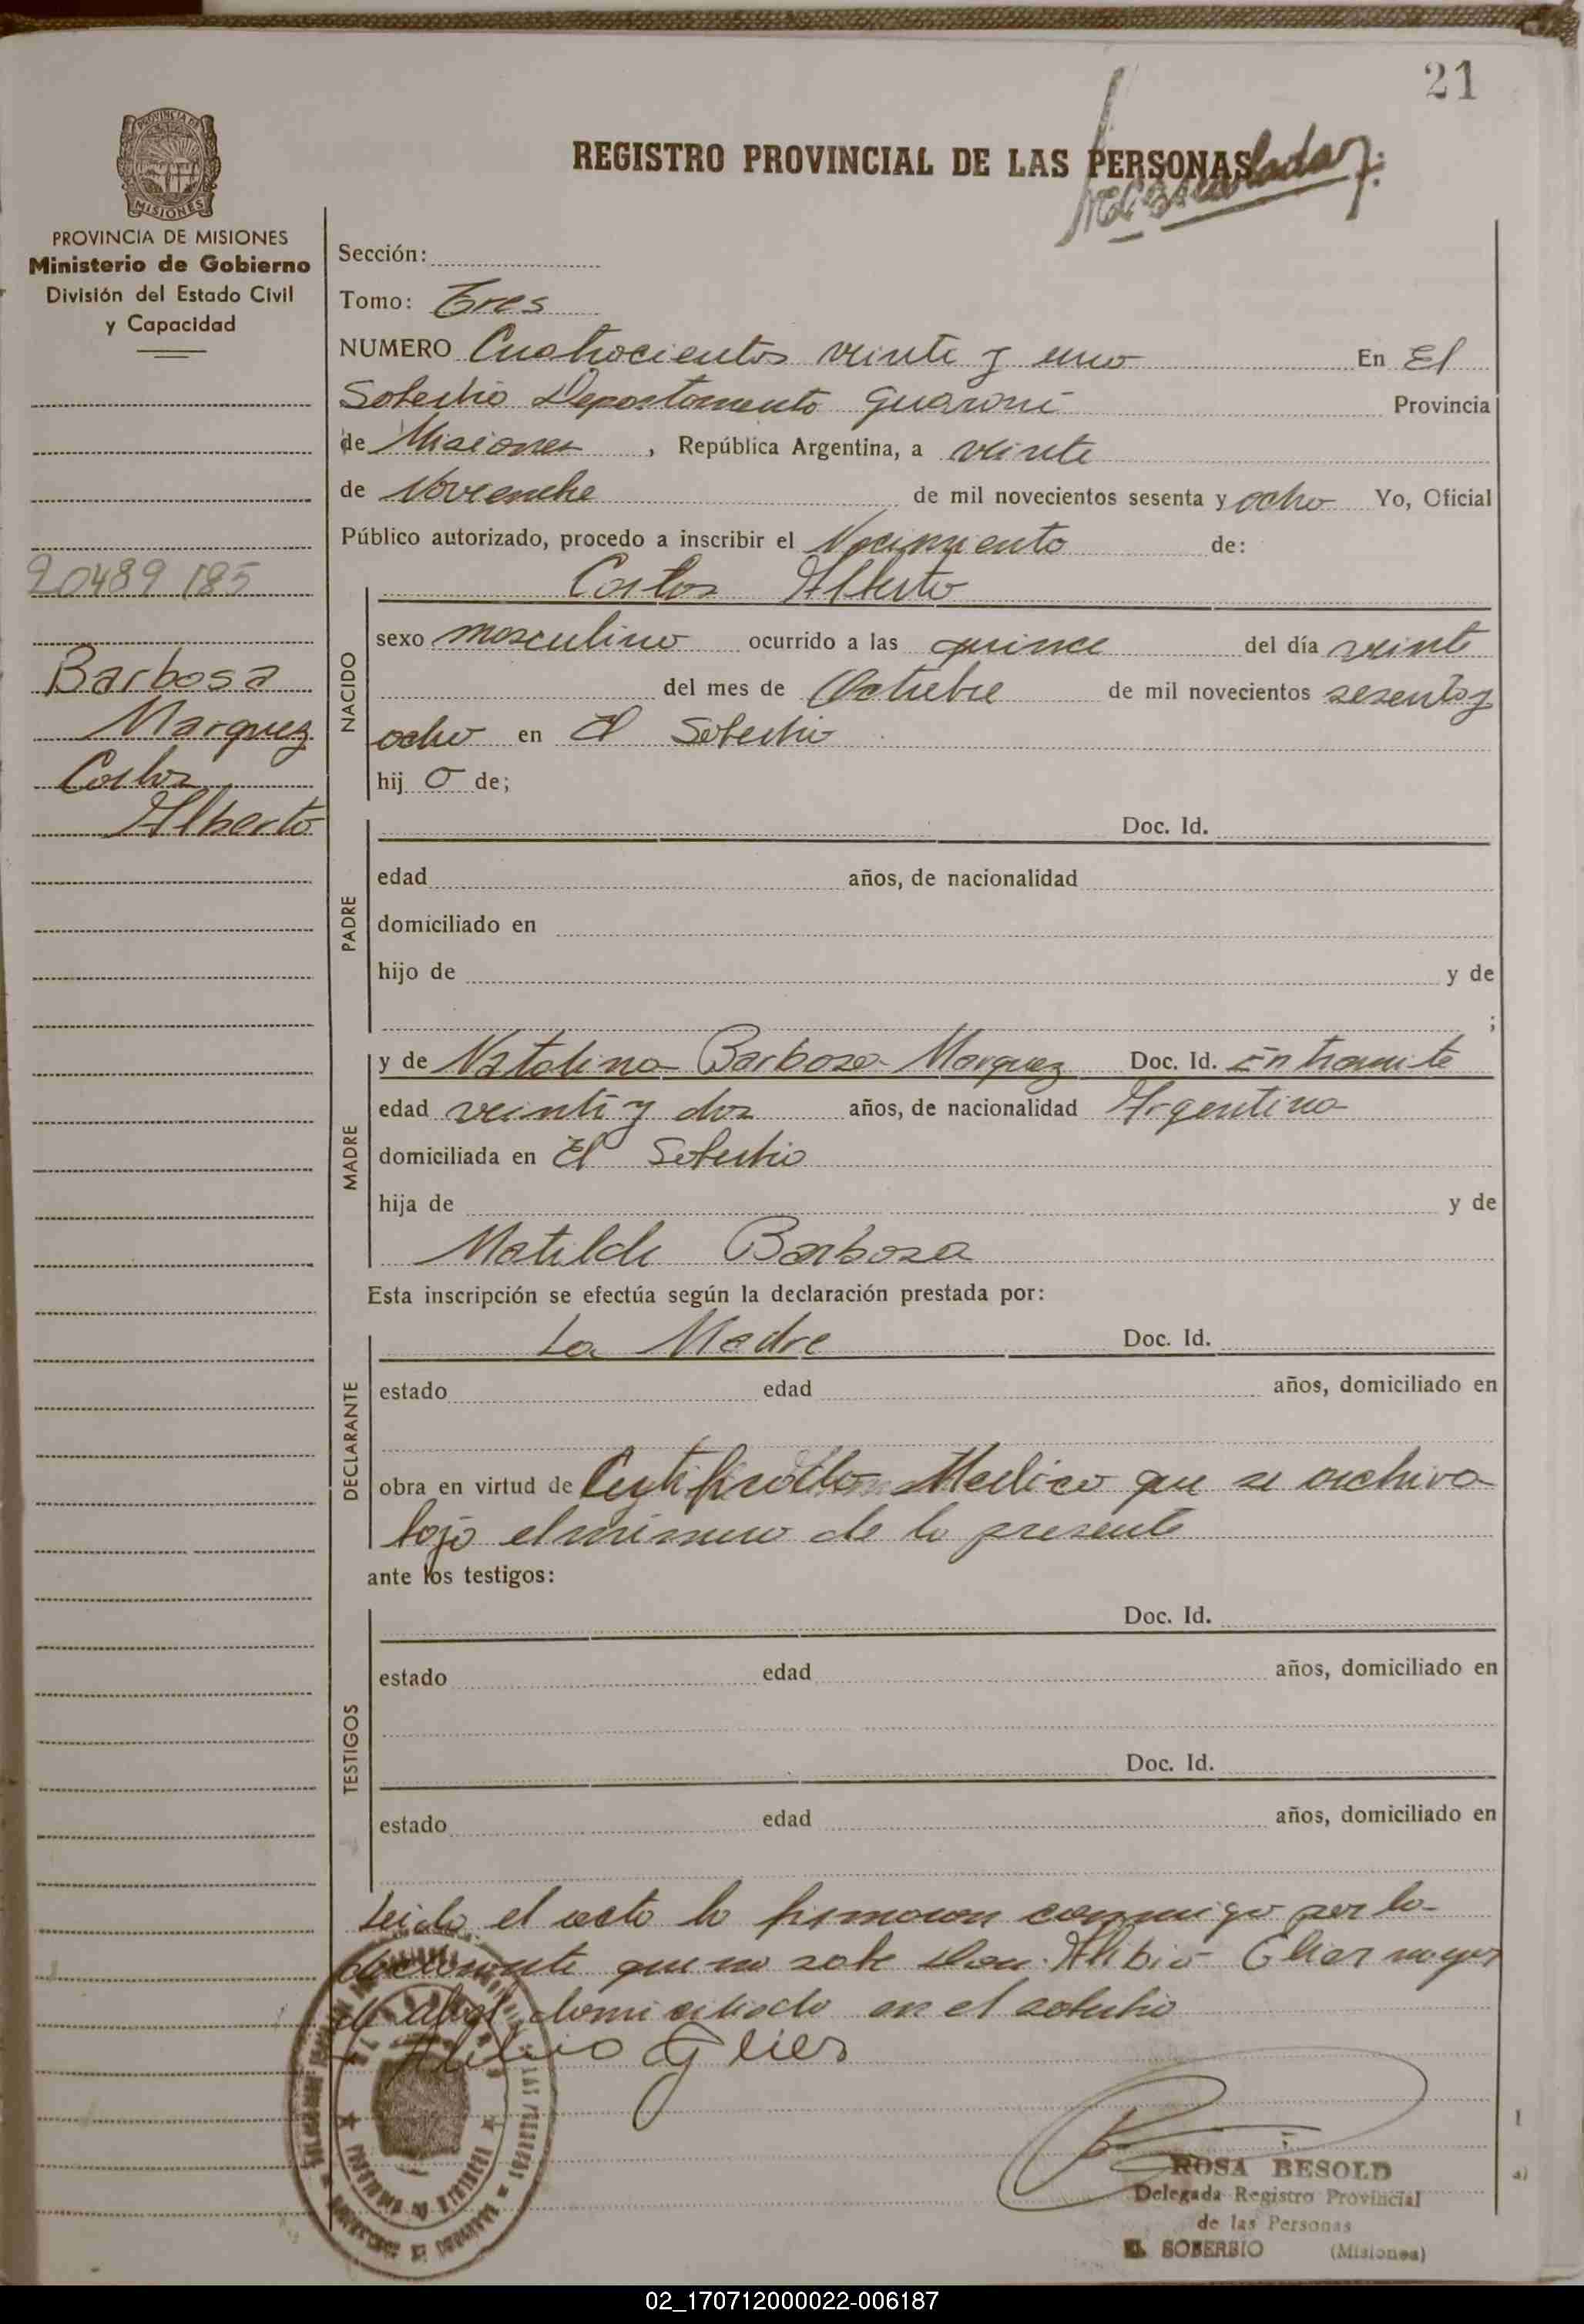 21
REGISTRO PROVINCIAL DE LAS PERSONAS
PROVINCIA DE MISIONES
MISIONES
PROVINCIA DE MISIONES
Ministerio de Gobierno
División del Estado Civil
y Capacidad
20489185
Barbosa
Marquez
Carlos
Alberto
Sección:
Tomo: Tres
NUMERO Cuatrocientos veinte y uno En El
Soberbio Departamento Guarani Provincia
de Misiones, República Argentina, a veinte
de Noviembre de mil novecientos sesenta y ocho Yo, Oficial
Público autorizado, procedo a inscribir el Nacimiento de:
Carlos Alberto
NACIDO
sexo masculino ocurrido a las quince del día veinte
del mes de Octubre de mil novecientos sesenta y
ocho en El Soberbio
hij o de;
PADRE
Doc. Id.
edad años, de nacionalidad
domiciliado en
hijo de y de
;
MADRE
y de Natalina Barbosa Marquez Doc. Id. En tramite
edad veinte y dos años, de nacionalidad Argentina
domiciliada en El Soberbio
hija de y de
Matilde Barbosa
Esta inscripción se efectúa según la declaración prestada por:
DECLARANTE
La Madre Doc. Id.
estado edad años, domiciliado en
obra en virtud de Certificado Medico que se archiva
bajo el numero de la presente
ante los testigos:
TESTIGOS
Doc. Id.
estado edad años, domiciliado en
Doc. Id.
estado edad años, domiciliado en
Leida el acta la firmaron conmigo por la
declarante que no sabe Don Alibio Glier mayor
de edad domiciliado en el soberbio
Alibio Glier
ROSA BESOLD
Delegada Registro Provincial
de las Personas
EL SOBERBIO (Misiones)
02_170712000022-006187